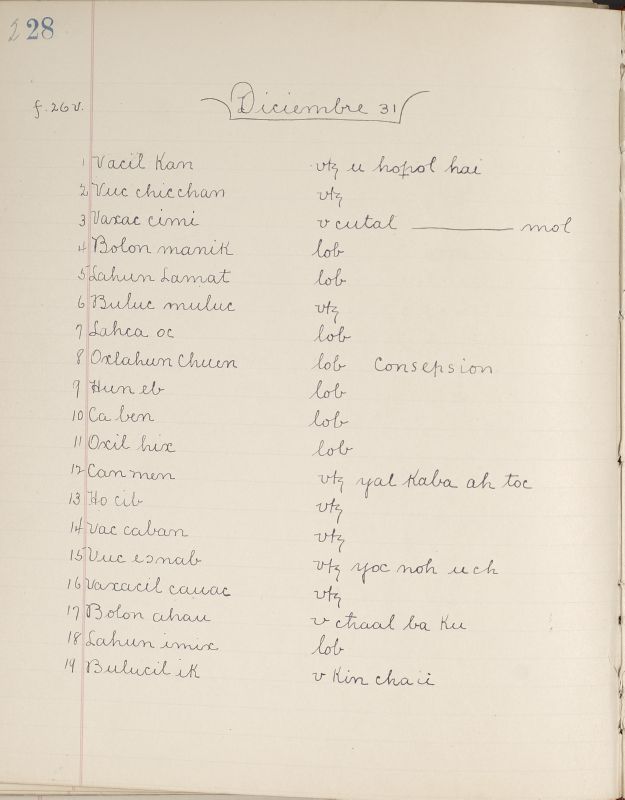 228
f. 26v. Diciembre 31
1 Vacil Kan vtz u hopol hai
2 Vuc chicchan vtz
3 Vaxac cimi v cutal ———— mol
4 Bolon manik lob
5 Lahun Lamat lob
6 Buluc muluc vtz
7 Lahca oc lob
8 Oxlahun Chuen lob Consepsion
9 Hun eb lob
10 Ca ben lob
11 Oxil hix lob
12 Can men vtz yal Kaba ah toc
13 Ho cib vtz
14 Vac caban vtz
15 Vuc esnab vtz yoc noh uch
16 Vaxacil cauac vtz
17 Bolon ahau v chaal ba Ku
18 Lahun imix lob
19 Bulucil ik v Kin chaii